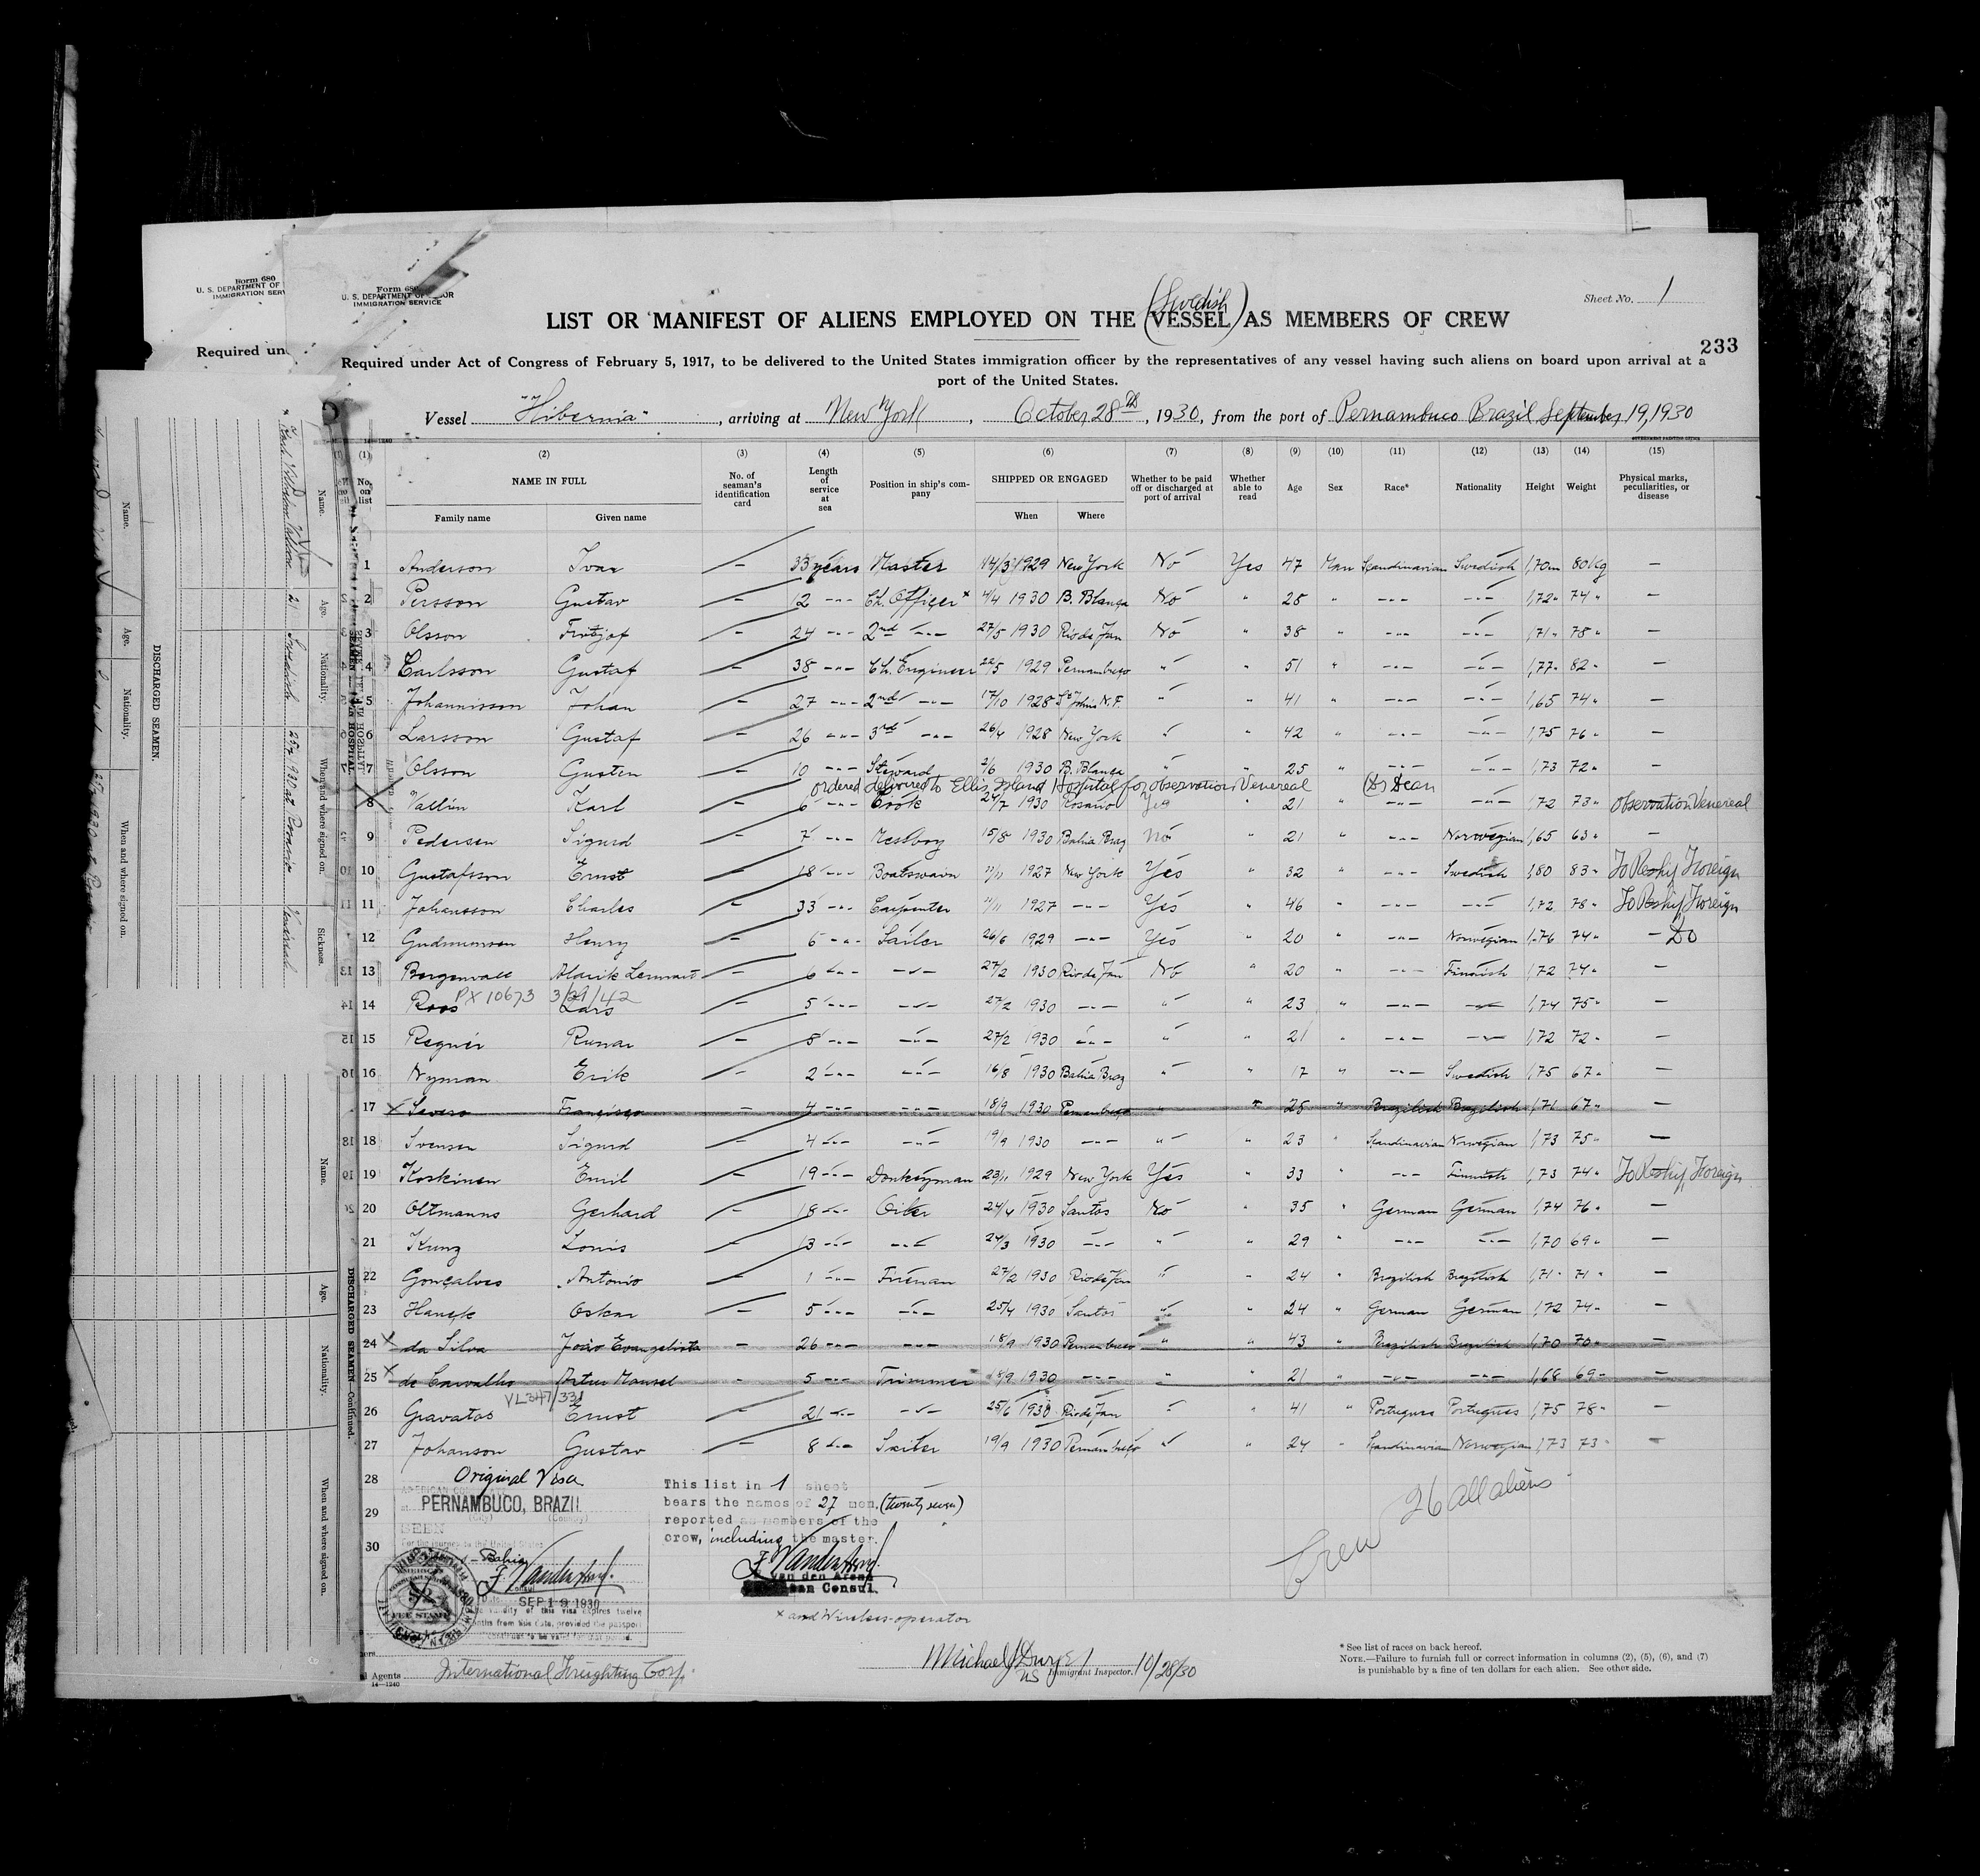 Form 680
U. S. DEPARTMENT OF
IMMIGRATION SERV
Required un
Form 680
U. S. DEPARTMENT OF LABOR
IMMIGRATION SERVICE
Sheet No. 1
(Swedish)
LIST OR MANIFEST OF ALIENS EMPLOYED ON THE VESSEL AS MEMBERS OF CREW
233
Required under Act of Congress of February 5, 1917, to be delivered to the United States immigration officer by the representatives of any vessel having such aliens on board upon arrival at a
port of the United States.
Vessel "Hibernia", arriving at New York, October 28th, 1930, from the port of Pernambuco Brazil September 19, 1930
(1) (2) (3) (4) (5) (6) (7) (8) (9) (10) (11) (12) (13) (14) (15)
No. on list NAME IN FULL No. of seaman's identification card Length of service at sea Position in ship's company SHIPPED OR ENGAGED Whether to be paid off or discharged at port of arrival Whether able to read Age Sex Race* Nationality Height Weight Physical marks, peculiarities, or disease
Family name Given name When Where
1 Anderson Ivar — 33 years Master 14/3 1929 New York No Yes 47 Man Scandinavian Swedish 1,70m 80Kg —
2 Persson Gustav — 12 -"- Ch. Officer x 4/4 1930 B. Blanca No " 28 " -"- -"- 1,72 " 74 " —
3 Olsson Fritjof — 24 -"- 2nd -"- 27/5 1930 Rio de Jan No " 38 " -"- -"- 1,71 " 78 " —
4 Carlsson Gustaf — 38 -"- Ch. Engineer 22/5 1929 Pernambuco " " 51 " -"- -"- 1,77 " 82 " —
5 Johannisson Johan — 27 -"- 2nd -"- 17/10 1928 St Johns N.F. " " 41 " -"- -"- 1,65 74 " —
6 Larsson Gustaf — 26 -"- 3rd -"- 26/4 1928 New York " " 42 " -"- -"- 1,75 76 " —
7 Olsson Gusten — 10 -"- Steward 2/6 1930 B. Blanca " " 25 " -"- -"- 1,73 72 " —
ordered delivered to Ellis Island Hospital for observation Venereal (Dr Dean
8 Vallin Karl — 6 -"- Cook 24/7 1930 Rosario Yes " 21 " -"- -"- 1,72 73 " Observation Venereal
9 Pedersen Sigurd — 7 -"- Messboy 15/8 1930 Bahia Braz No " 21 " -"- Norwegian 1,65 63 " —
10 Gustafsson Ernst — 18 -"- Boatswain 11/11 1927 New York Yes " 32 " -"- Swedish 1,80 83 " To Reship Foreign
11 Johansson Charles — 33 -"- Carpenter 11/11 1927 -"- Yes " 46 " -"- -"- 1,72 78 " To Reship Foreign
12 Gudmunsen Henry — 6 -"- Sailor 26/6 1929 -"- Yes " 20 " -"- Norwegian 1,76 74 " — Do
13 Bergenvall Alarik Lennart — 6 -"- -"- 27/2 1930 Rio de Jan No " 20 " -"- Finnish 1,72 74 " —
PX 10673 3/21/42
14 Roos Lars — 5 -"- -"- 27/2 1930 -"- " " 23 " -"- -"- 1,74 75 " —
15 Regnér Runar — 8 -"- -"- 27/2 1930 -"- " " 21 " -"- -"- 1,72 72 " —
16 Nyman Erik — 2 -"- -"- 16/8 1930 Bahia Braz " " 17 " -"- Swedish 1,75 67 " —
17 x Severo Francisco — 4 -"- -"- 18/9 1930 Pernambuco " " 25 " Brazilish Brazilish 1,71 67 " —
18 Svensen Sigurd — 4 -"- -"- 19/9 1930 -"- " " 23 " Scandinavian Norwegian 1,73 75 " —
19 Koskinen Emil — 19 -"- Donkeyman 23/11 1929 New York Yes " 33 " -"- Finnish 1,73 74 " To Reship Foreign
20 Oltmanns Gerhard — 18 -"- Oiler 24/4 1930 Santos No " 35 " German German 1,74 76 " —
21 Kunz Louis — 13 -"- -"- 24/3 1930 -"- " " 29 " -"- -"- 1,70 69 " —
22 Gonçalves Antonio — 1 -"- Fireman 27/2 1930 Rio de Jan " " 24 " Brazilish Brazilish 1,71 " 71 " —
23 Hanck Oskar — 5 -"- -"- 25/4 1930 Santos " " 24 " German German 1,72 74 " —
24 x da Silva João Evangelista — 26 -"- -"- 18/9 1930 Pernambuco " " 43 " Brazilish Brazilish 1,70 70 " —
25 x de Carvalho Artur Manuel — 5 -"- Trimmer 18/9 1930 -"- " " 21 " -"- -"- 1,68 69 " —
VL347/331
26 Gravatos Ernst — 21 -"- -"- 25/6 1930 Rio de Jan " " 41 " Portugues Portugues 1,75 78 " —
27 Johanson Gustav — 8 -"- Sailor 19/9 1930 Pernambuco " " 24 " Scandinavian Norwegian 1,73 73 " —
28
29
30
Original Visa
AMERICAN CONSULATE
at PERNAMBUCO, BRAZIL
(City) (Country)
SEEN
For the journey to the United States
Bahia
Consul
Date SEP 19 1930
validity of this visa expires twelve
months from this date, provided the passport
continues to be valid for that period.
FEE STAMP
This list in 1 sheet
bears the names of 27 men, (twenty seven)
reported as members of the
crew, including the master.
F. van den Arend
American Consul.
Crew 26 all aliens
x and Wireless operator
Michael J Dwyer 10/28/30
US Immigrant Inspector.
Agents International Freighting Corp.
14—1240
* See list of races on back hereof.
NOTE.—Failure to furnish full or correct information in columns (2), (5), (6), and (7)
is punishable by a fine of ten dollars for each alien. See other side.
SEAMEN LEFT IN HOSPITAL
Name. Age. Nationality. When and where signed on. Sickness.
Karl Vilhelm Vallin 21 Swedish 25/7 1930 at Rosario Venereal
DISCHARGED SEAMEN.
Name. Age. Nationality. When and where signed on.
DISCHARGED SEAMEN—Continued.
Name. Age. Nationality. When and where signed on.